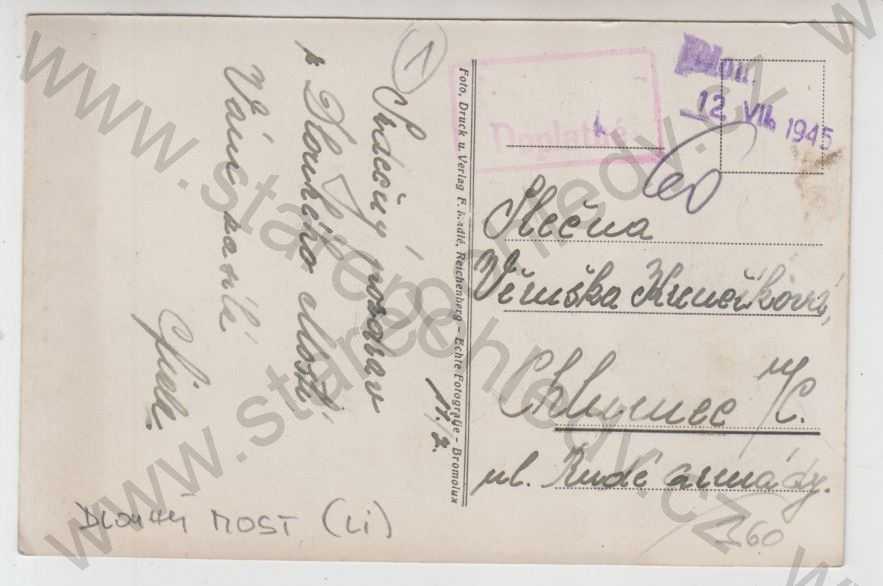 1
Srdečný pozdrav
z Dlouhého Mostu
Vám zasílá
17./7.
Foto, Druck u. Verlag F. Kadlé, Reichenberg – Echte Fotografie – Bromolux
Doplatné
12 VII. 1945
60
Slečna
Věruška
Chlumec n/C.
ul. Rudé armády.
DLOUHÝ MOST (LI)
160
www.starepohledy.cz